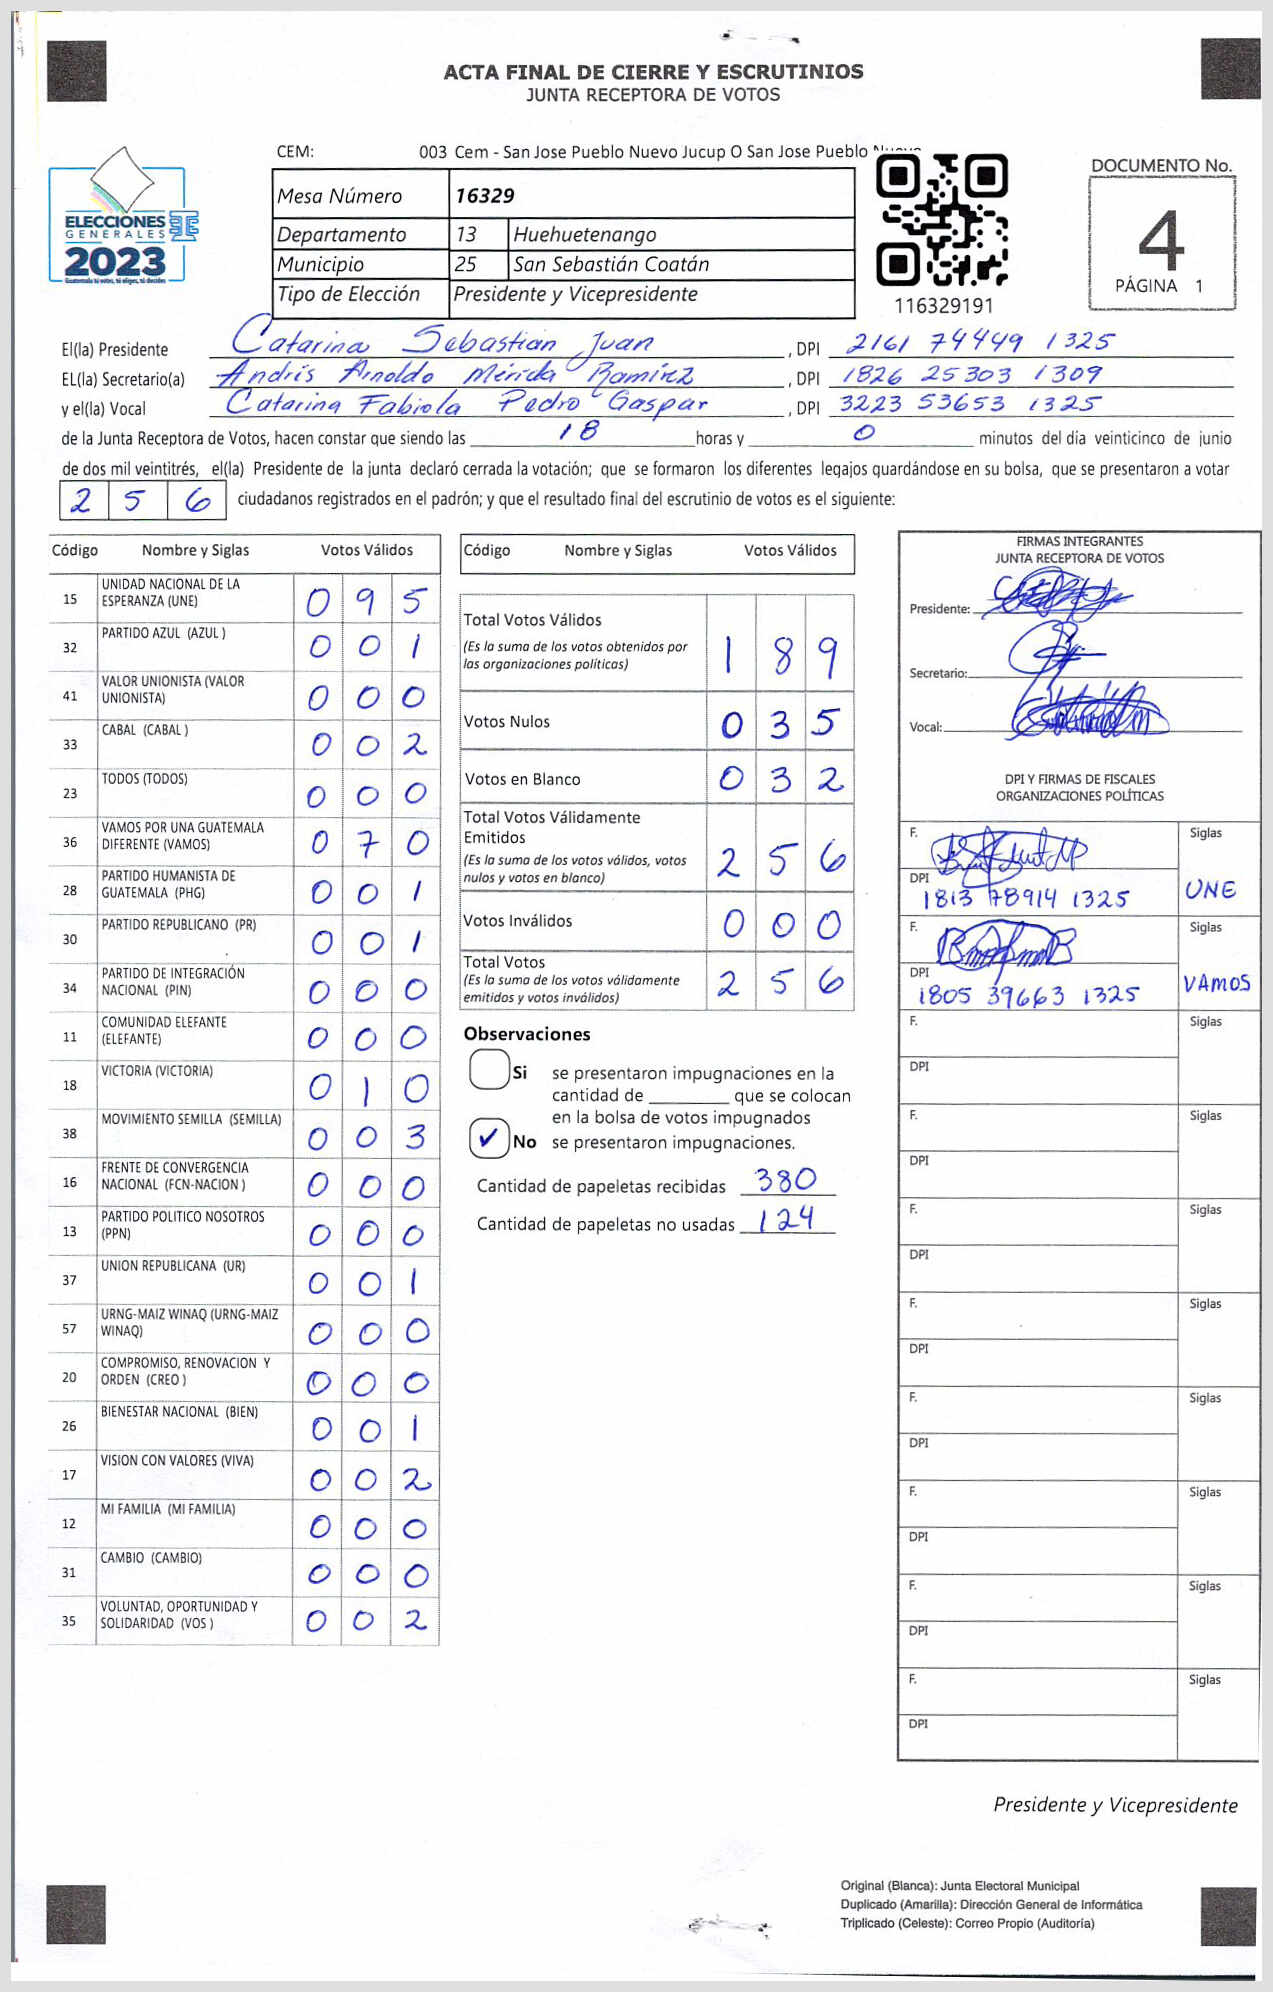 ACTA FINAL DE CIERRE Y ESCRUTINIOS
JUNTA RECEPTORA DE VOTOS
CEM: 003 Cem - San Jose Pueblo Nuevo Jucup O San Jose Pueblo
ELECCIONES
GENERALES
2023
Guatemala tú votes, tú eliges, tú decides
Mesa Número 16329
Departamento 13 Huehuetenango
Municipio 25 San Sebastián Coatán
Tipo de Elección Presidente y Vicepresidente
116329191
DOCUMENTO No.
4
PÁGINA 1
El(la) Presidente Catarina Sebastian Juan , DPI 2161 74449 1325
EL(la) Secretario(a) Andrís Arnoldo Mérida Ramírez , DPI 1826 25303 1309
y el(la) Vocal Catarina Fabiola Pedro Gaspar , DPI 3223 53653 1325
de la Junta Receptora de Votos, hacen constar que siendo las 18 horas y 0 minutos del día veinticinco de junio
de dos mil veintitrés, el(la) Presidente de la junta declaró cerrada la votación; que se formaron los diferentes legajos guardándose en su bolsa, que se presentaron a votar
2 5 6 ciudadanos registrados en el padrón; y que el resultado final del escrutinio de votos es el siguiente:
Código Nombre y Siglas Votos Válidos
15 UNIDAD NACIONAL DE LA
ESPERANZA (UNE) 0 9 5
32 PARTIDO AZUL (AZUL ) 0 0 1
41 VALOR UNIONISTA (VALOR
UNIONISTA) 0 0 0
33 CABAL (CABAL ) 0 0 2
23 TODOS (TODOS) 0 0 0
36 VAMOS POR UNA GUATEMALA
DIFERENTE (VAMOS) 0 7 0
28 PARTIDO HUMANISTA DE
GUATEMALA (PHG) 0 0 1
30 PARTIDO REPUBLICANO (PR) 0 0 1
34 PARTIDO DE INTEGRACIÓN
NACIONAL (PIN) 0 0 0
11 COMUNIDAD ELEFANTE
(ELEFANTE) 0 0 0
18 VICTORIA (VICTORIA) 0 1 0
38 MOVIMIENTO SEMILLA (SEMILLA) 0 0 3
16 FRENTE DE CONVERGENCIA
NACIONAL (FCN-NACION ) 0 0 0
13 PARTIDO POLITICO NOSOTROS
(PPN) 0 0 0
37 UNION REPUBLICANA (UR) 0 0 1
57 URNG-MAIZ WINAQ (URNG-MAIZ
WINAQ) 0 0 0
20 COMPROMISO, RENOVACION Y
ORDEN (CREO ) 0 0 0
26 BIENESTAR NACIONAL (BIEN) 0 0 1
17 VISION CON VALORES (VIVA) 0 0 2
12 MI FAMILIA (MI FAMILIA) 0 0 0
31 CAMBIO (CAMBIO) 0 0 0
35 VOLUNTAD, OPORTUNIDAD Y
SOLIDARIDAD (VOS ) 0 0 2
Código Nombre y Siglas Votos Válidos
Total Votos Válidos
(Es la suma de los votos obtenidos por
las organizaciones políticas) 1 8 9
Votos Nulos 0 3 5
Votos en Blanco 0 3 2
Total Votos Válidamente
Emitidos
(Es la suma de los votos válidos, votos
nulos y votos en blanco) 2 5 6
Votos Inválidos 0 0 0
Total Votos
(Es la suma de los votos válidamente
emitidos y votos inválidos) 2 5 6
Observaciones
Si se presentaron impugnaciones en la
cantidad de que se colocan
en la bolsa de votos impugnados
✓ No se presentaron impugnaciones.
Cantidad de papeletas recibidas 380
Cantidad de papeletas no usadas 124
FIRMAS INTEGRANTES
JUNTA RECEPTORA DE VOTOS
Presidente:
Secretario:
Vocal:
DPI Y FIRMAS DE FISCALES
ORGANIZACIONES POLÍTICAS
F. Siglas
DPI 1813 78914 1325 UNE
F. Siglas
DPI 1805 39663 1325 VAMOS
F. Siglas
DPI
F. Siglas
DPI
F. Siglas
DPI
F. Siglas
DPI
F. Siglas
DPI
F. Siglas
DPI
F. Siglas
DPI
F. Siglas
DPI
Presidente y Vicepresidente
Original (Blanca): Junta Electoral Municipal
Duplicado (Amarilla): Dirección General de Informática
Triplicado (Celeste): Correo Propio (Auditoría)